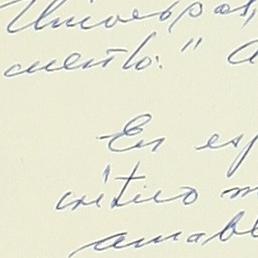 cuento." a
En esp
crítico m
amabl